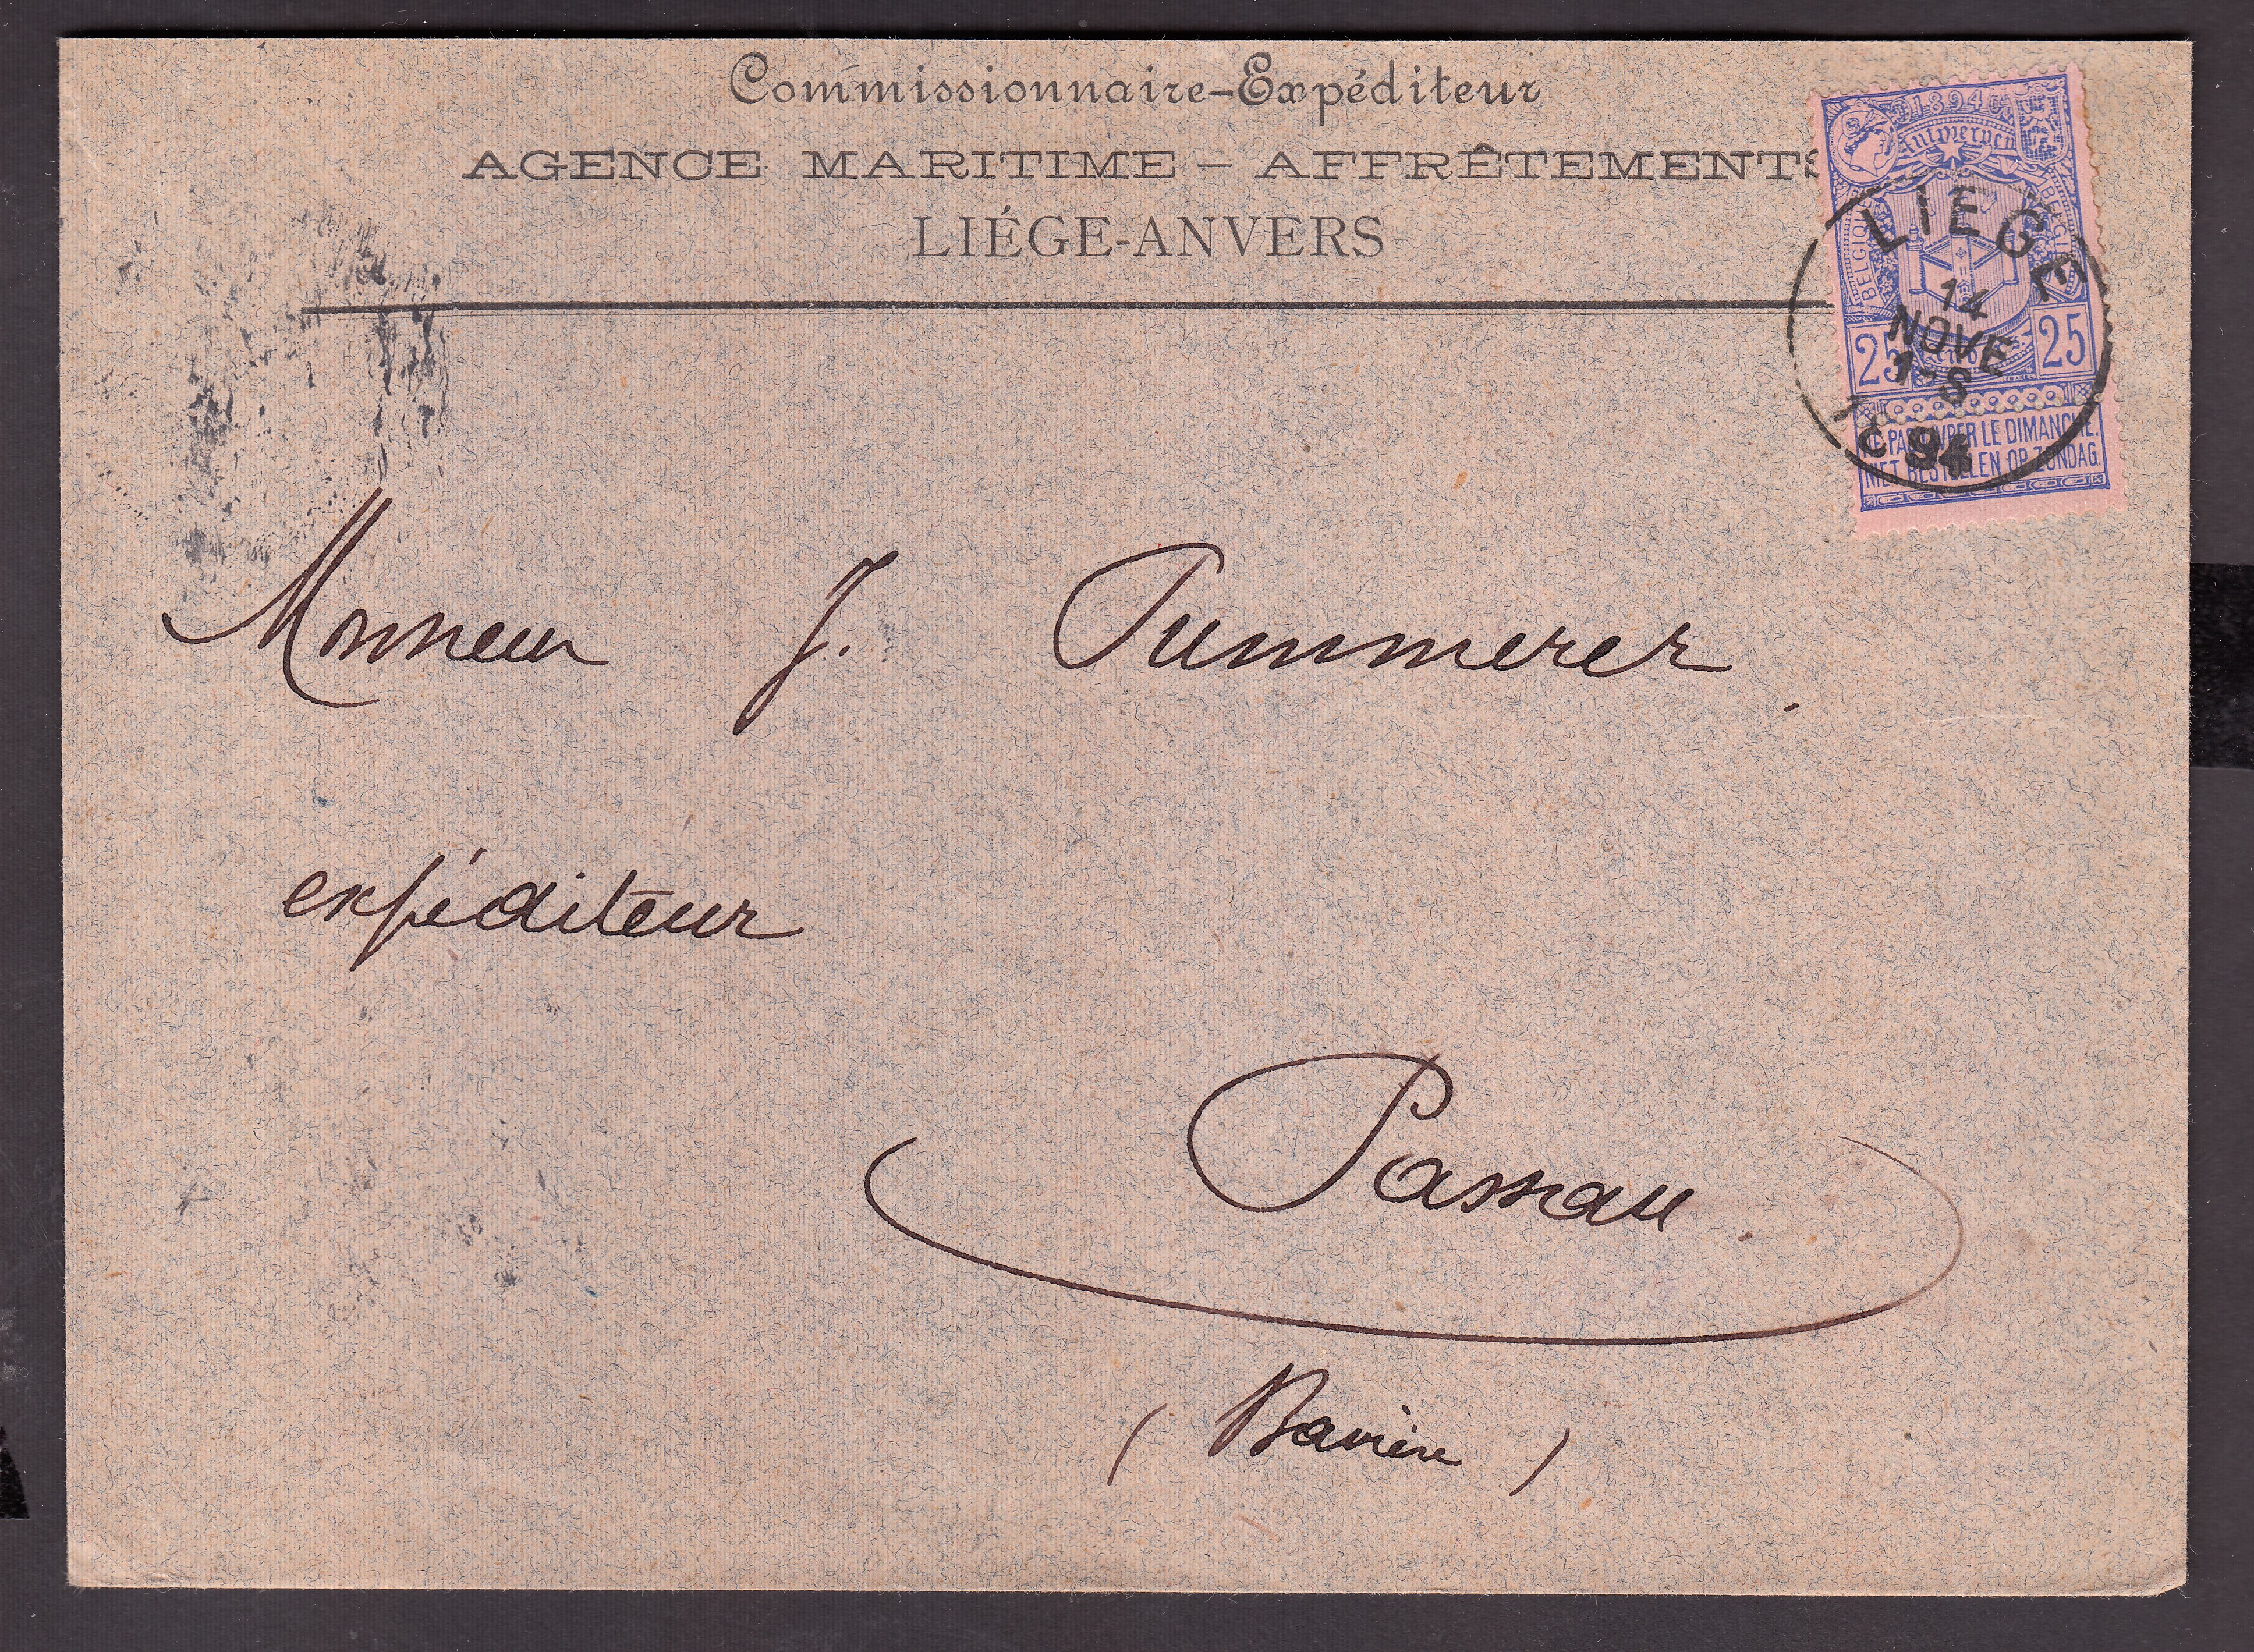 Commissionnaire-Expéditeur
AGENCE MARITIME - AFFRÊTEMENTS
LIÉGE-ANVERS
1894
Antwerpen
BELGIQUE
BELGIË
25 25
NE PAS LIVRER LE DIMANCHE.
NIET BESTELLEN OP ZONDAG.
LIEGE
14
NOVE
1-S
1894
Monsieur J. Pummerer.
expéditeur
Passau
(Bavière)